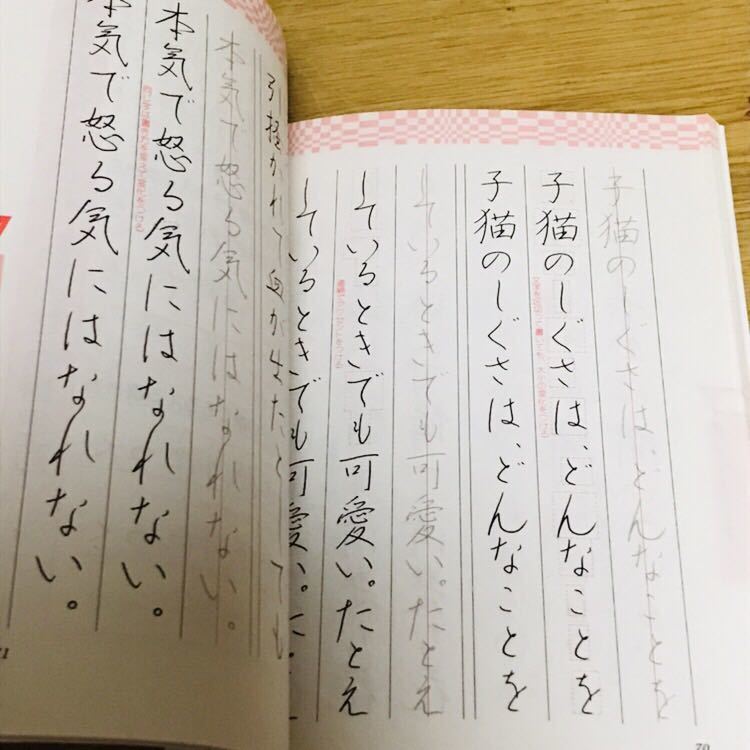 子猫のしぐさは、どんなことを
子猫のしぐさは、どんなことを
子猫のしぐさは、どんなことを
しているときでも可愛い。たとえ
しているときでも可愛い。たとえ
しているときでも可愛い。た
70
ても
本気で怒る気にはなれない。
本気で怒る気にはなれない。
本気で怒る気にはなれない。